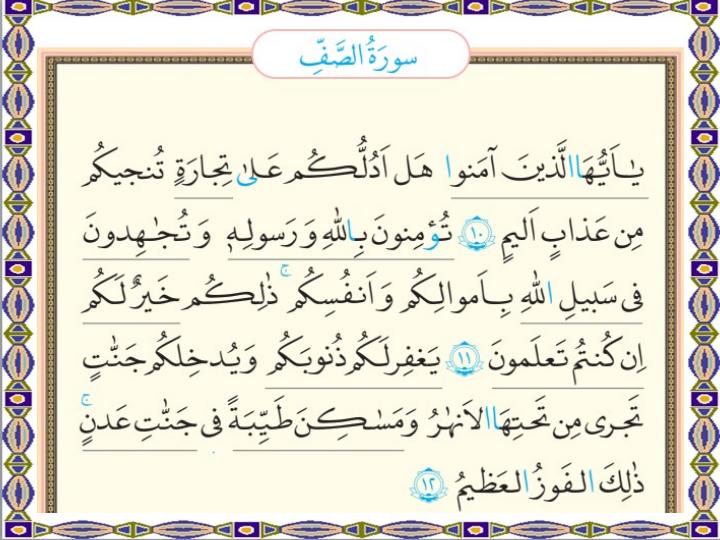 سورَةُ الصَّفِّ
يٰـاَيُّهَا الَّذينَ آمَنوا هَل اَدُلُّكُم عَلىٰ تِجارَةٍ تُنجيكُم
مِن عَذابٍ اَليمٍ ١٠ تُؤمِنونَ بِاللّٰهِ وَ رَسولِهٖ وَ تُجٰهِدونَ
فى سَبيلِ اللّٰهِ بِاَموالِكُم وَ اَنفُسِكُم ۚ ذٰلِكُم خَيرٌ لَكُم
اِن كُنتُم تَعلَمونَ ١١ يَغفِر لَكُم ذُنوبَكُم وَ يُدخِلكُم جَنّٰتٍ
تَجرى مِن تَحتِهَا الاَنهٰرُ وَ مَسٰكِنَ طَيِّبَةً فى جَنّٰتِ عَدنٍ ۚ
ذٰلِكَ الفَوزُ العَظيمُ ١٢